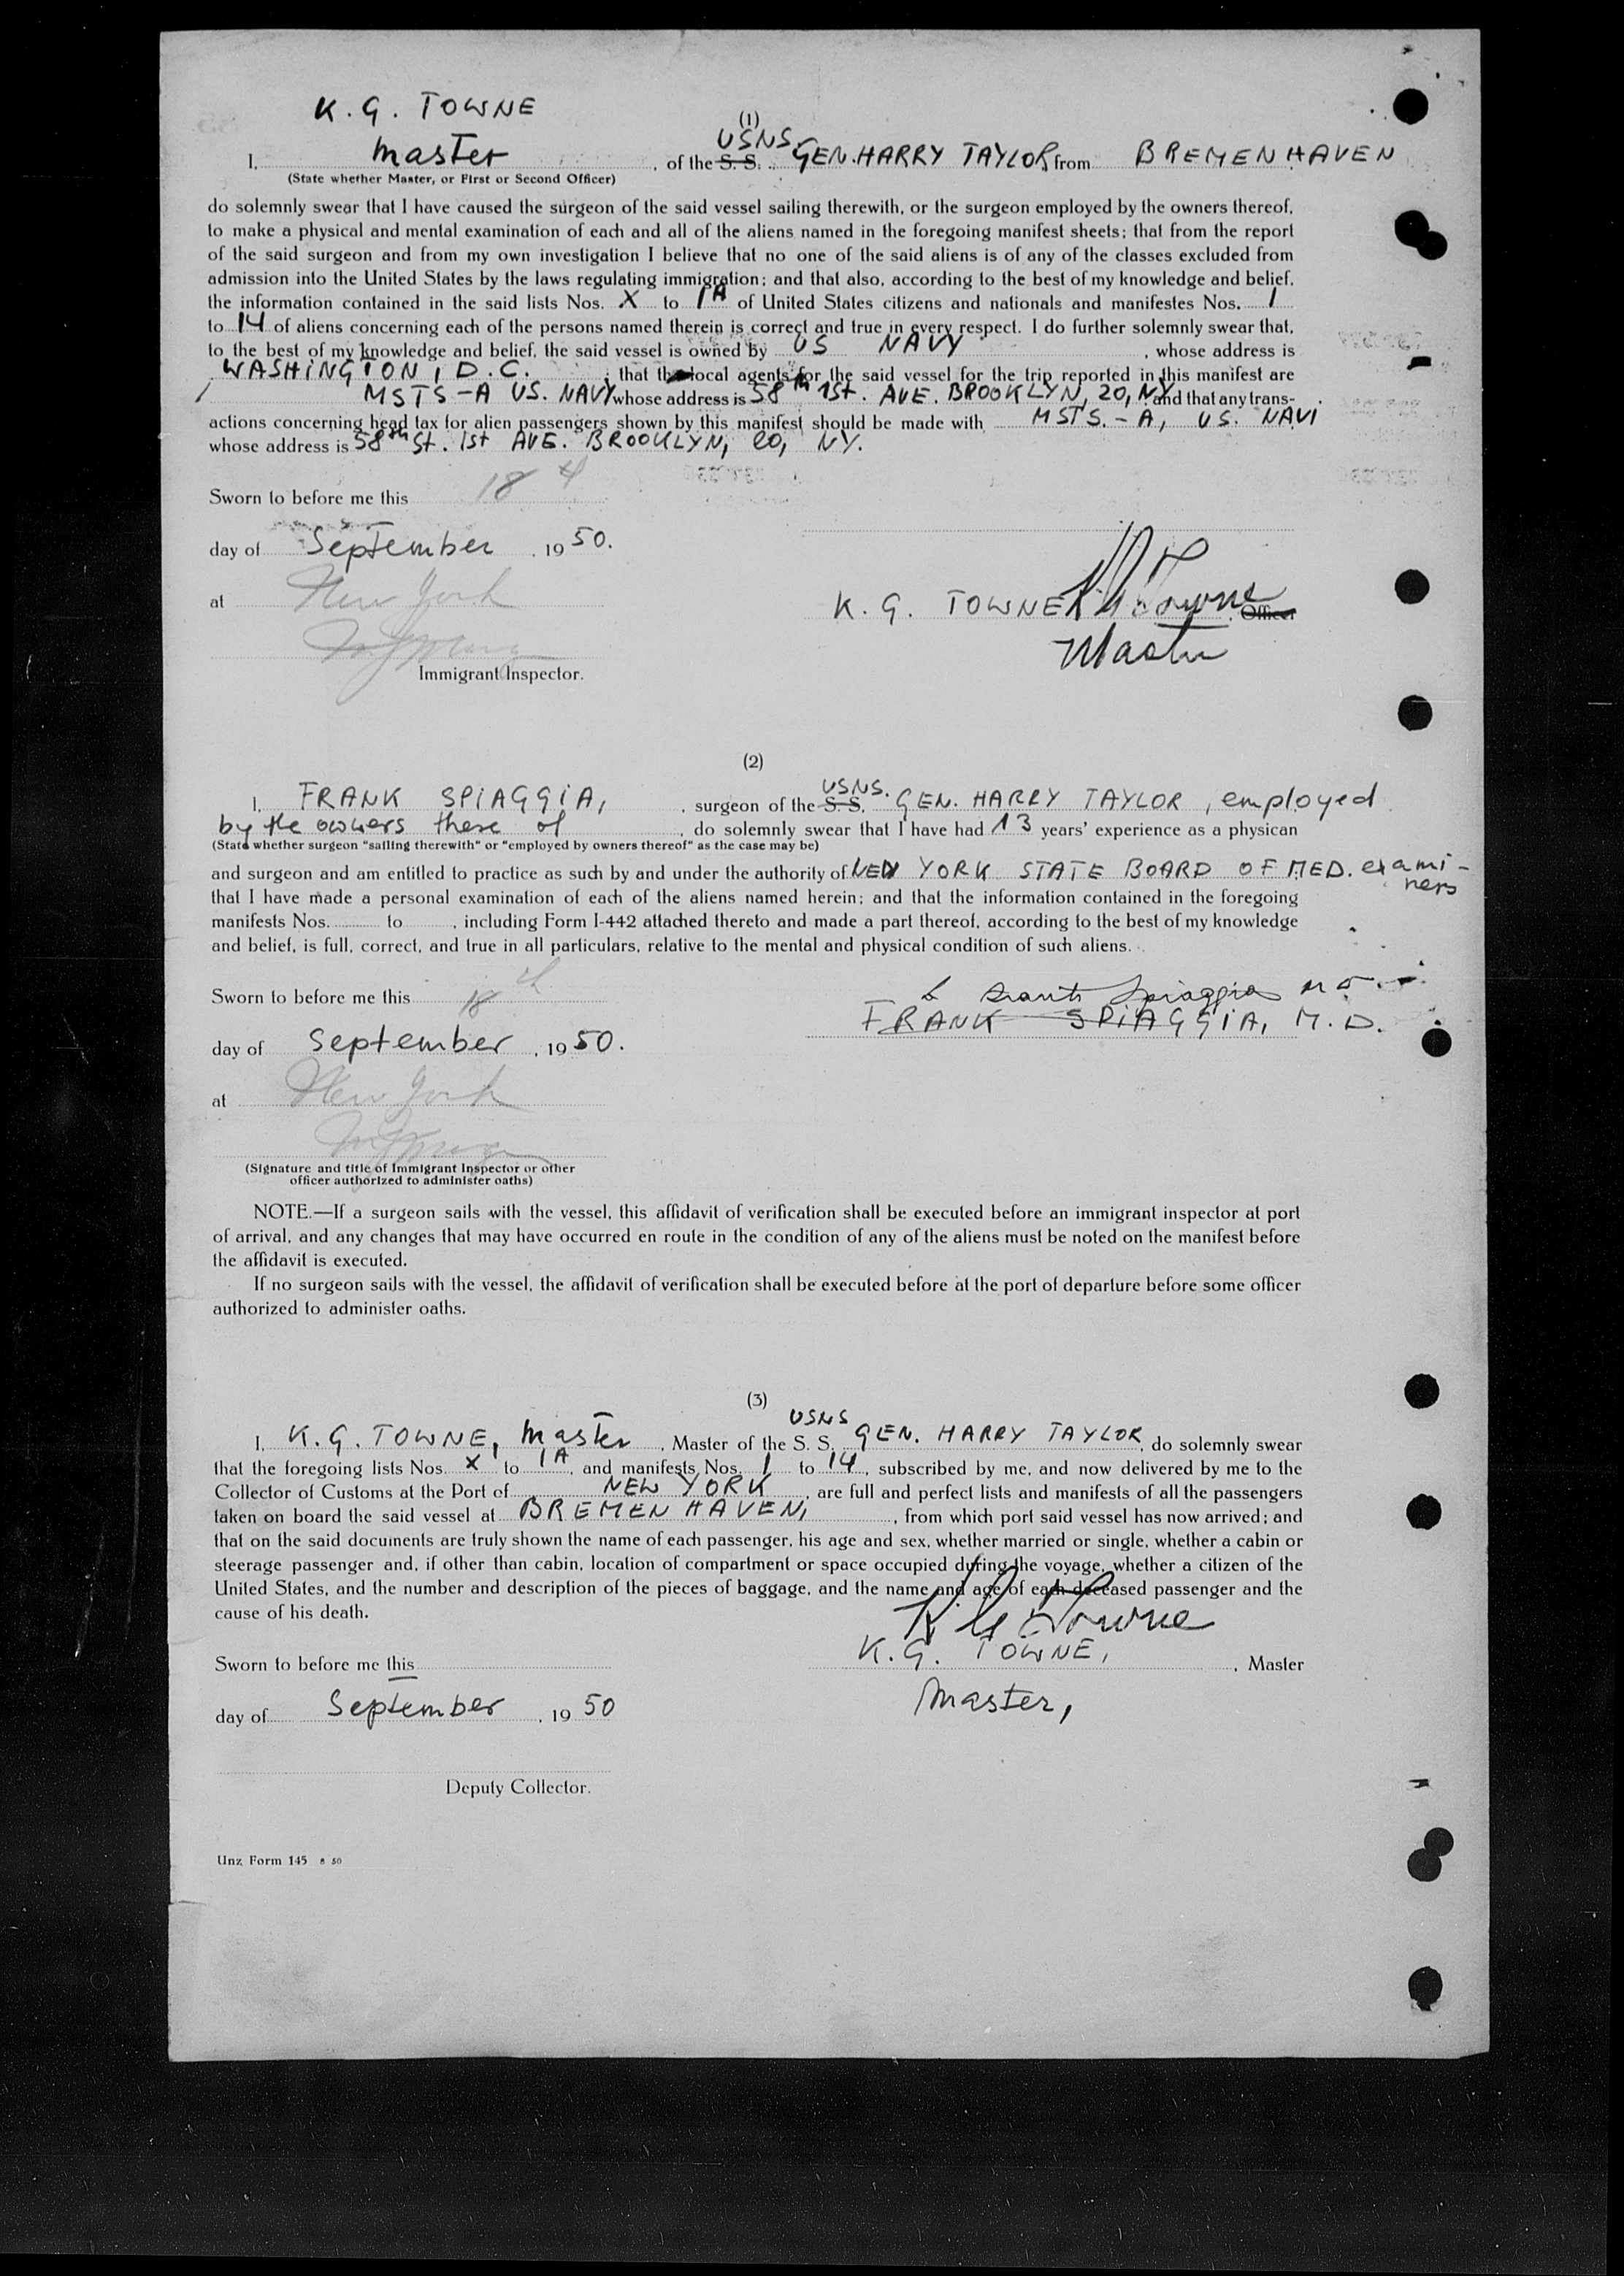 K. G. TOWNE
(1)
USNS
I, master, of the S. S. GEN. HARRY TAYLOR, from BREMENHAVEN
(State whether Master, or First or Second Officer)
do solemnly swear that I have caused the surgeon of the said vessel sailing therewith, or the surgeon employed by the owners thereof,
to make a physical and mental examination of each and all of the aliens named in the foregoing manifest sheets; that from the report
of the said surgeon and from my own investigation I believe that no one of the said aliens is of any of the classes excluded from
admission into the United States by the laws regulating immigration; and that also, according to the best of my knowledge and belief,
the information contained in the said lists Nos. X to 1A of United States citizens and nationals and manifestes Nos. 1
to 14 of aliens concerning each of the persons named therein is correct and true in every respect. I do further solemnly swear that,
to the best of my knowledge and belief, the said vessel is owned by US NAVY, whose address is
WASHINGTON, D.C.; that the local agents for the said vessel for the trip reported in this manifest are
MSTS-A US. NAVY whose address is 58th 1st. AVE. BROOKLYN, 20, NY and that any trans-
actions concerning head tax for alien passengers shown by this manifest should be made with MSTS.-A, US. NAVI
whose address is 58th St. 1st AVE. BROOKLYN, 20, NY.
Sworn to before me this 18th
day of September, 19 50.
at New York
K. G. TOWNE K G Towne, Officer
Master
Immigrant Inspector.
(2)
USNS.
I, FRANK SPIAGGIA, , surgeon of the S. S. GEN. HARRY TAYLOR, employed
by the owners there of, do solemnly swear that I have had 13 years' experience as a physican
(State whether surgeon "sailing therewith" or "employed by owners thereof" as the case may be)
and surgeon and am entitled to practice as such by and under the authority of NEW YORK STATE BOARD OF MED. exami-
ners
that I have made a personal examination of each of the aliens named herein; and that the information contained in the foregoing
manifests Nos. to , including Form I-442 attached thereto and made a part thereof, according to the best of my knowledge
and belief, is full, correct, and true in all particulars, relative to the mental and physical condition of such aliens.
Sworn to before me this 18th
Frank Spiaggia MD
FRANK SPIAGGIA, M.D.
day of September, 19 50.
at New York
(Signature and title of Immigrant Inspector or other
officer authorized to administer oaths)
NOTE.—If a surgeon sails with the vessel, this affidavit of verification shall be executed before an immigrant inspector at port
of arrival, and any changes that may have occurred en route in the condition of any of the aliens must be noted on the manifest before
the affidavit is executed.
If no surgeon sails with the vessel, the affidavit of verification shall be executed before at the port of departure before some officer
authorized to administer oaths.
(3)
USNS
I, K. G. TOWNE, master, Master of the S. S. GEN. HARRY TAYLOR, do solemnly swear
that the foregoing lists Nos. X to 1A, and manifests Nos. 1 to 14, subscribed by me, and now delivered by me to the
Collector of Customs at the Port of NEW YORK, are full and perfect lists and manifests of all the passengers
taken on board the said vessel at BREMENHAVEN, , from which port said vessel has now arrived; and
that on the said documents are truly shown the name of each passenger, his age and sex, whether married or single, whether a cabin or
steerage passenger and, if other than cabin, location of compartment or space occupied during the voyage, whether a citizen of the
United States, and the number and description of the pieces of baggage, and the name and age of each deceased passenger and the
cause of his death.
K G Towne
Sworn to before me this
K. G. TOWNE, , Master
day of September, 19 50
master,
Deputy Collector.
Unz Form 145 8 50